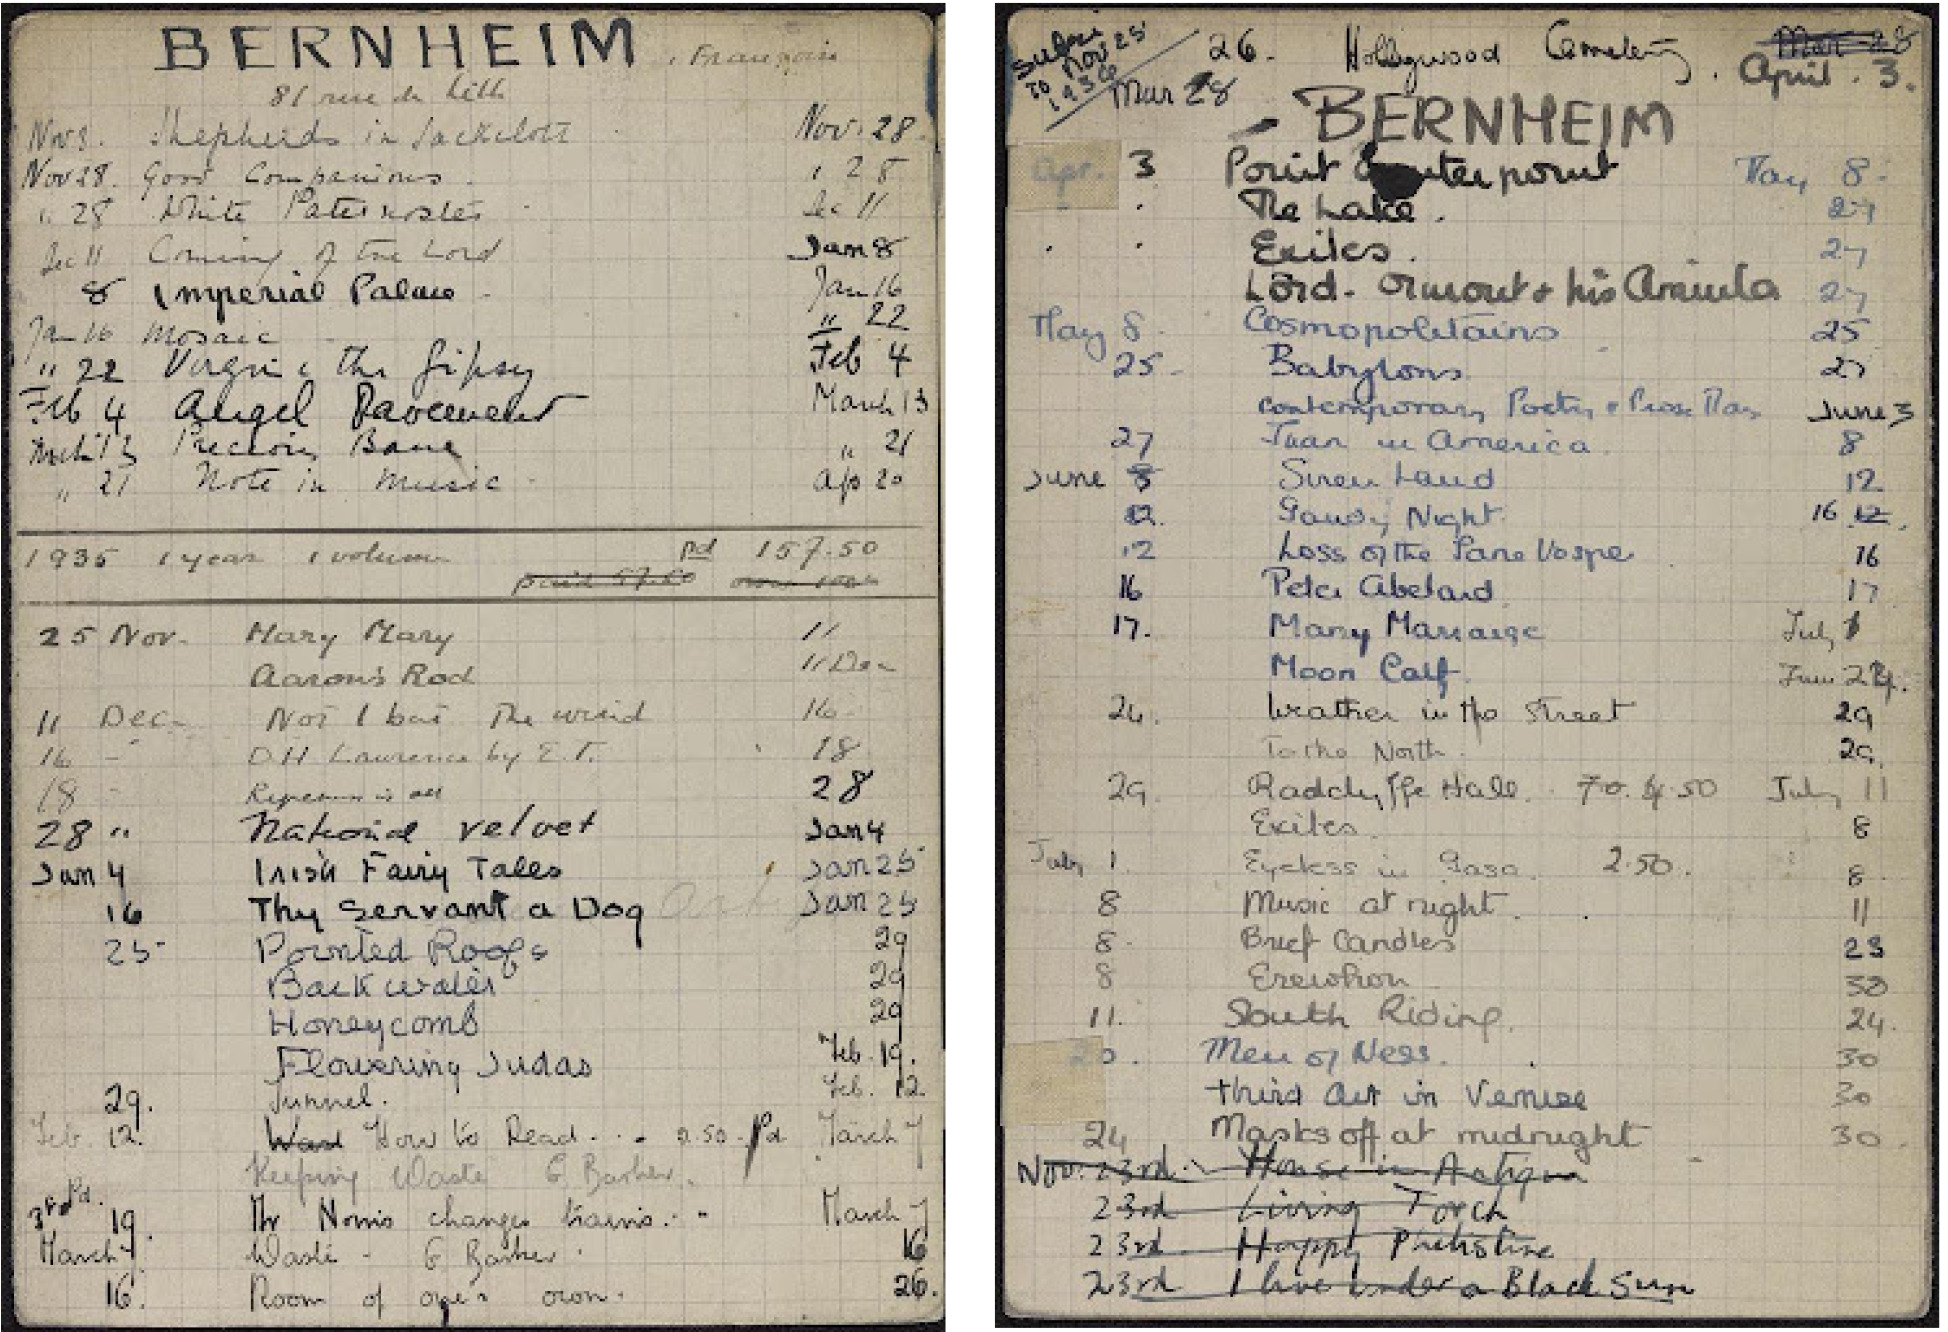 BERNHEIM, Françoise
81 rue de Lille
Nov 3. Shepherds in Sackcloth Nov. 28.
Nov 28. Good Companions. " 28
" 28 White Paternoster Dec 11
Dec 11 Coming of the Lord Jan 8
8 Imperial Palace. Jan 16
Jan 16 Mosaic " 22
" 22 Virgin & the Gipsy Feb 4
Feb 4 Angel Pavement March 13
March 13 Precious Bane " 21
" 21 Note in Music Apr 20
1935 1 year 1 volume pd 157.50
paid 57.50
25 Nov. Mary Mary 11
Aaron's Rod 11 Dec
11 Dec Not I but the wind 16
16 - D.H. Lawrence by E.T. 18
18 - 28
28 " National Velvet Jan 4
Jan 4 Irish Fairy Tales Jan 25
16 Thy Servant a Dog Jan 25
25 Pointed Roofs 29
Backwater 29
Honeycomb 29
Flowering Judas Feb. 19.
29. Tunnel. Feb. 12.
Feb. 12. How to Read... 2.50 Pd March 7
Keeping Waste G Barker.
3rd Pd.
19. Mr Norris changes trains.. March 7
March 7 Waste - G Barker. 16
16. Room of one's own. 26.
Subscr to Nov 25 1936
Mar 28 26. Hollywood Cemetery. Mar 28 April. 3.
BERNHEIM
Apr. 3 Point Counterpoint May 8.
The Lake. 27
Exiles. 27
Lord Ormont & his Aminta 27
May 8. Cosmopolitains 25
25. Babylons 27
Contemporary Poetry & Prose May June 3
27 Juan in America. 8
June 8 Siren Land 12
12. Gaudy Night 16 12.
12 Loss of the Jane Vosper 16
16 Peter Abelard 17
17. Many Marriage July 1
Moon Calf. June 24.
24. Weather in the Street 29
To the North. 29.
29. Radclyffe Hall. 70. 4.50 July 11
Exiles. 8
July 1. Eyeless in Gaza. 2.50. 8
8 Music at night. 11
8. Brief Candles 23
8 Erewhon 30
11. South Riding. 24.
20. Men of Ness. 30
Third Act in Venice 30
24 Masks off at midnight 30.
Nov. 23rd. House in Antigua
23rd Living Torch
23rd. Happy Philistine
23rd I live under a Black Sun